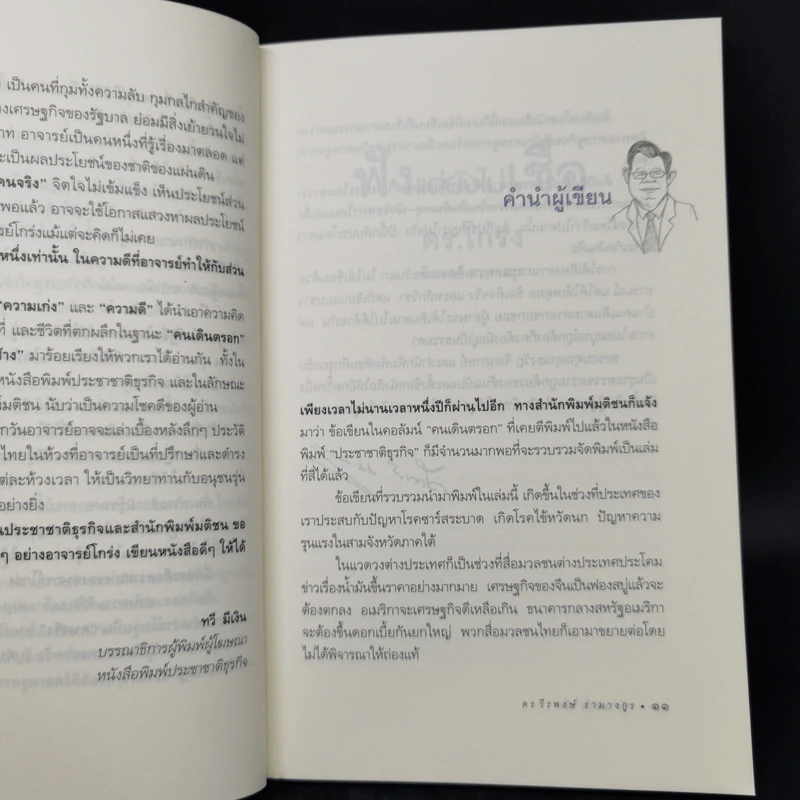 เป็นคนที่กุมทั้งความลับ กุมกลไกสำคัญของ
งเศรษฐกิจของรัฐบาล ย่อมมีสิ่งเย้ายวนใจไม่
าท อาจารย์เป็นคนหนึ่งที่รู้เรื่องมาตลอด แต่
ะเป็นผลประโยชน์ของชาติของแผ่นดิน
คนจริง” จิตใจไม่เข้มแข็ง เห็นประโยชน์ส่วน
พอแล้ว อาจจะใช้โอกาสแสวงหาผลประโยชน์
ย์โกร่งแม้แต่จะคิดก็ไม่เคย
หนึ่งเท่านั้น ในความดีที่อาจารย์ทำให้กับส่วน
“ความเก่ง” และ “ความดี” ได้นำเอาความคิด
ที่ และชีวิตที่ตกผลึกในฐานะ “คนเดินตรอก”
ง้าง” มาร้อยเรียงให้พวกเราได้อ่านกัน ทั้งใน
หนังสือพิมพ์ประชาชาติธุรกิจ และในลักษณะ
มติชน นับว่าเป็นความโชคดีของผู้อ่าน
กวันอาจารย์อาจจะเล่าเบื้องหลังลึกๆ ประวัติ
ไทยในห้วงที่อาจารย์เป็นที่ปรึกษาและดำรง
ต่ละห้วงเวลา ให้เป็นวิทยาทานกับอนุชนรุ่น
อย่างยิ่ง
นประชาชาติธุรกิจและสำนักพิมพ์มติชน ขอ
ๆ อย่างอาจารย์โกร่ง เขียนหนังสือดีๆ ให้ได้
ทวี มีเงิน
บรรณาธิการผู้พิมพ์ผู้โฆษณา
หนังสือพิมพ์ประชาชาติธุรกิจ
คำนำผู้เขียน
เพียงเวลาไม่นานเวลาหนึ่งปีก็ผ่านไปอีก ทางสำนักพิมพ์มติชนก็แจ้ง
มาว่า ข้อเขียนในคอลัมน์ “คนเดินตรอก” ที่เคยตีพิมพ์ไปแล้วในหนังสือ
พิมพ์ “ประชาชาติธุรกิจ” ก็มีจำนวนมากพอที่จะรวบรวมจัดพิมพ์เป็นเล่ม
ที่สี่ได้แล้ว
ข้อเขียนที่รวบรวมนำมาพิมพ์ในเล่มนี้ เกิดขึ้นในช่วงที่ประเทศของ
เราประสบกับปัญหาโรคซาร์สระบาด เกิดโรคไข้หวัดนก ปัญหาความ
รุนแรงในสามจังหวัดภาคใต้
ในแวดวงต่างประเทศก็เป็นช่วงที่สื่อมวลชนต่างประเทศประโคม
ข่าวเรื่องน้ำมันขึ้นราคาอย่างมากมาย เศรษฐกิจของจีนเป็นฟองสบู่แล้วจะ
ต้องตกลง อเมริกาจะเศรษฐกิจดีเหลือเกิน ธนาคารกลางสหรัฐอเมริกา
จะต้องขึ้นดอกเบี้ยกันยกใหญ่ พวกสื่อมวลชนไทยก็เอามาขยายต่อโดย
ไม่ได้พิจารณาให้ถ่องแท้
ดร.วีรพงษ์ รามางกูร • ๑๑